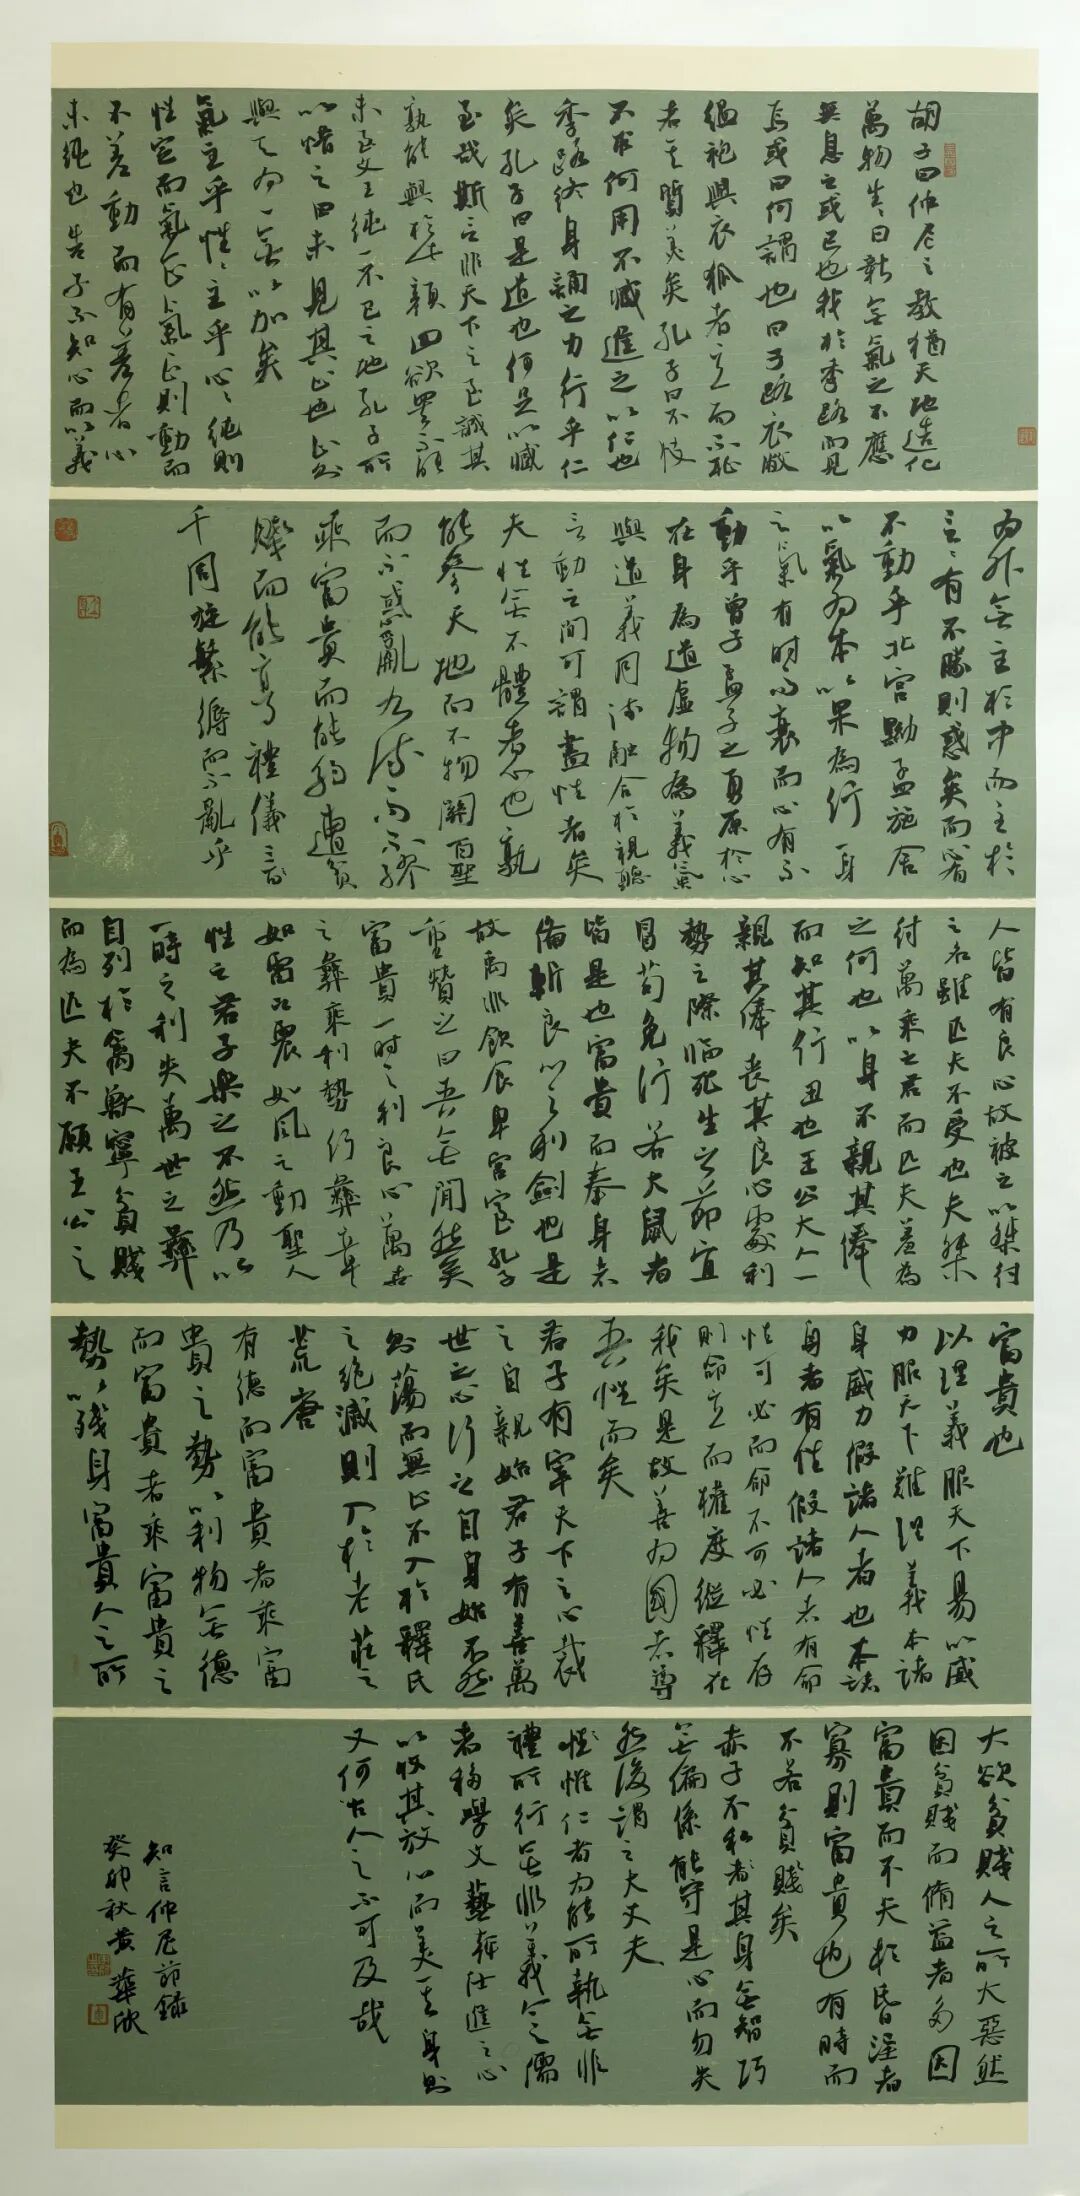 胡子曰仲尼之教猶天地造化
萬物生生日新無氣之不應
無息之或已也我於季路而見
焉或曰何謂也曰子路衣敝
縕袍與衣狐者立而不恥
者其質美矣孔子曰不忮
不求何用不臧進之以仁也
季路終身誦之力行乎仁
矣孔子曰是道也何足以臧
至哉斯言非天下之至誠其
孰能與於此顏回欲罷不能
未至文王純一不已之地孔子所
以惜之曰未見其止也止則
與天為一無以加矣
氣主乎性性主乎心心純則
性定而氣正氣正則動而
不差動而有差者心
未純也告子不知心而以義
為外無主於中而主於
言言有不勝則惑矣而心有
不動乎北宮黝孟施舍
以氣為本以果為行一身
之氣有時而衰而心有不
動乎曾子孟子之勇原於心
在身為道處物為義氣
與道義同流融合於視聽
言動之間可謂盡性者矣
夫性無不體者心也孰
能參天地而不物關百聖
而不惑亂九流而不繆
乘富貴而能約遭貧
賤而能亨禮儀三百
千周旋繁縟而不亂乎
人皆有良心故被之以桀紂
之名雖匹夫不受也夫桀
紂萬乘之君而匹夫羞為
之何也以身不親其俸
而知其行丑也王公大人一
親其俸喪其良心處利
勢之際臨死生之節宜
冒苟免行若大鼠者
皆是也富貴而奉身者
備斬良心之利劍也是
故禹菲飲食卑宮室孔子
重贊之曰吾無間然矣
富貴一時之利良心萬世
之彝乘利勢行彝章
如雷之震如風之動聖人
性之君子樂之不然乃以
一時之利失萬世之彝
自列於禽獸寧貧賤
而為匹夫不願王公之
富貴也
以理義服天下易以威
力服天下難理義本諸
身威力假諸人者也本諸
身者有性假諸人者有命
性可必而命不可必性存
則命立而權度縱釋在
我矣是故善為國者尊
吾性而矣
君子有宰天下之心裁
之自親始君子有善萬
世之心行之自身始不然
則蕩而無止不入於釋氏
之絕滅則入於老莊之
荒唐
有德而富貴者乘富
貴之勢以利物無德
而富貴者乘富貴之
勢以殘身富貴人之所
大欲貧賤人之所大惡然
因貧賤而脩益者多因
富貴而不失於昏淫者
寡則富貴也有時而
不若貧賤矣
赤子不私其身無智巧
無偏係能守是心而勿失
然後謂之大丈夫
惟惟仁者為能所執無非
禮所行無非義今之儒
者移學文藝幹仕進之心
以收其放心而美其身則
又何古人之不可及哉
知言仲尼節錄
癸卯秋黃華欣